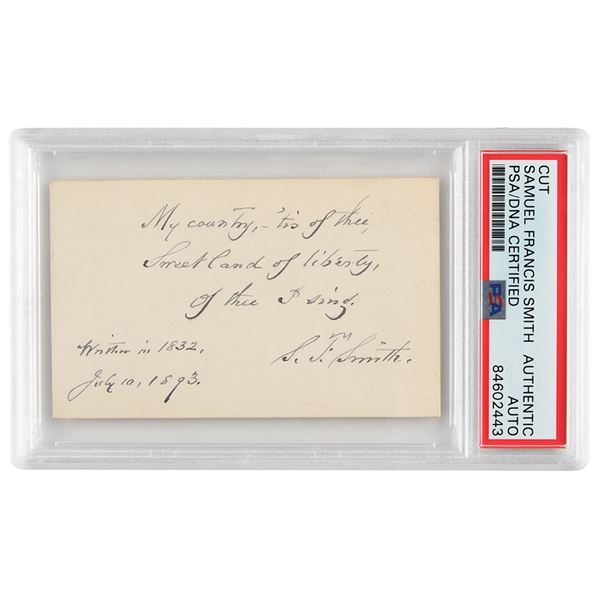 My country, - 'tis of thee,
Sweet land of liberty,
Of thee I sing.
Written in 1832.
S. F. Smith.
July 10, 1893.
CUT
SAMUEL FRANCIS SMITH AUTHENTIC
PSA/DNA CERTIFIED AUTO
PSA
84602443